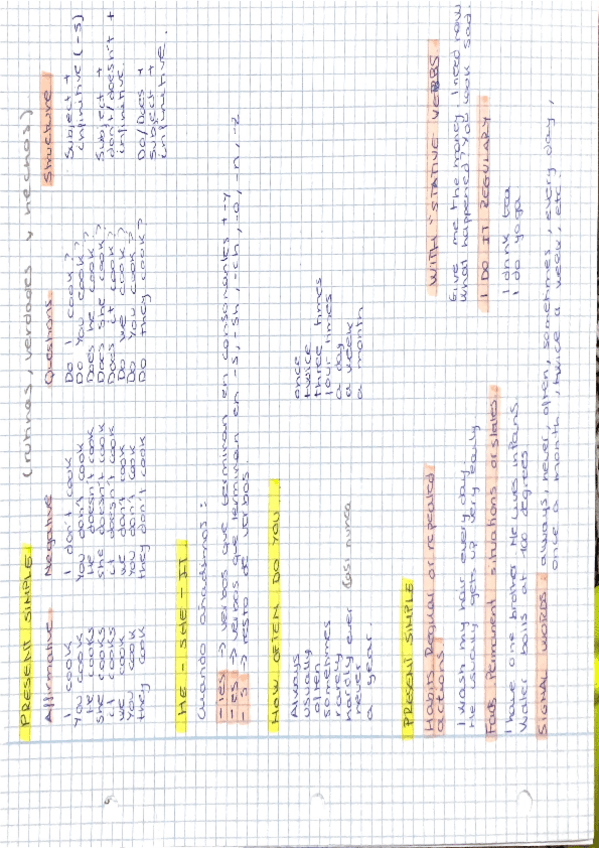 PRESENT SIMPLE (rutinas, verdades y hechos)
Affirmative Negative Questions Structure
I cook I don't cook Do I cook? Subject +
You cook You don't cook Do You cook? infinitive (-s)
He cooks He doesn't cook Does he cook?
she cooks she doesn't cook Does she cook? Subject +
it cooks it doesn't cook Does it cook? don't/doesn't +
we cook we don't cook Do we cook? infinitive.
You cook You don't cook Do You cook? Do/Does +
they cook they don't cook Do they cook? Subject +
infinitive.
HE - SHE - IT
Cuando añadimos:
-ies -> verbos que terminan en consonantes + -y
-es -> verbos que terminan en -s, -sh, -ch, -o, -z
-s -> resto de verbos.
HOW OFTEN DO YOU...
Always once
usually twice
often three times
sometimes four times
rarely a day
hardly ever casi nunca a week
never a month
a year.
PRESENT SIMPLE WITH "STATIVE VERBS
Habits Regular or repeated
actions.
I wash my hair every day. Give me the money. I need now
He usually gets up very early What happened? You look sad.
Facts Permanent situations or states. I DO IT REGULARY
I have one brother He lives in Paris. I drink tea
Water boils at 100 degrees I do yoga
SIGNAL WORDS: always, never, often, sometimes, every day,
once a month, twice a week, etc.